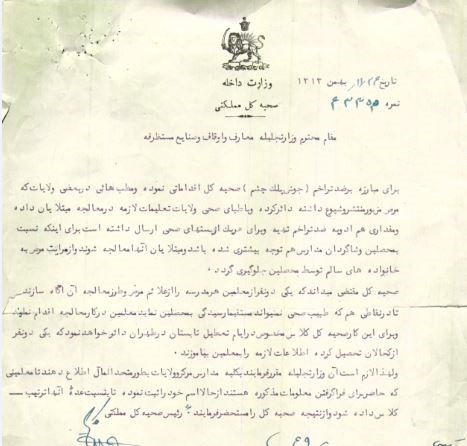 وزارت داخله
صحیه کل مملکتی
تاریخ بهمن ۱۳۱۳
نمره
مقام محترم وزارتجلیله معارف واوقاف وصنایع مستظرفه
برای مبارزه برضد تراخم (جوش پلك چشم) صحیه کل اقداماتی نموده ومطب هائی دربعضی ولایات که
مرض مزبورمنتشروشیوع داشته دائرکرده وباطبای صحی ولایات تعلیمات لازمه درمعالجه مبتلایان داده
ومقداری هم ادویه ضدتراخم تهیه وبرای هریك ازپستهای صحی ارسال داشته است برای اینکه نسبت
بمحصلین وشاگردان مدارس هم توجه بیشتری شده باشد ومبتلایان آنها معالجه شوند وازسرایت مرض به
خانواده های سالم توسط محصلین جلوگیری گردد.
صحیه کل مقتضی میداند که یکی دونفرازمعلمین هرمدرسه را ازعلائم مرض وطرزمعالجه آن آگاه سازند
تا درنقاطی هم که طبیب صحی نمیتواند مستقیما رسیدگی بمحصلین نماید معلمین درکارمعالجه اقدام نمایند
وبرای این کارصحیه کل کلاس مخصوص درایام تعطیل تابستان درطهران دائرخواهد نمود که یکی دونفر
ازکحالان تحصیل کرده اطلاعات لازمه را بمعلمین بیاموزند.
ولهذا لازم است آن وزارتجلیله مقررفرمایند بکلیه مدارس مرکزوولایات بطورمتحدالمال اطلاع دهند تا معلمینی
که حاضربرای فراگرفتن معلومات مذکوره هستند ازحالا اسم خودرا ثبت نموده تا به نسبت عدۀ آنها ترتیب
کلاس داده شود وازنتیجه صحیه کل را مستحضرفرمایند. رئیس صحیه کل مملکتی